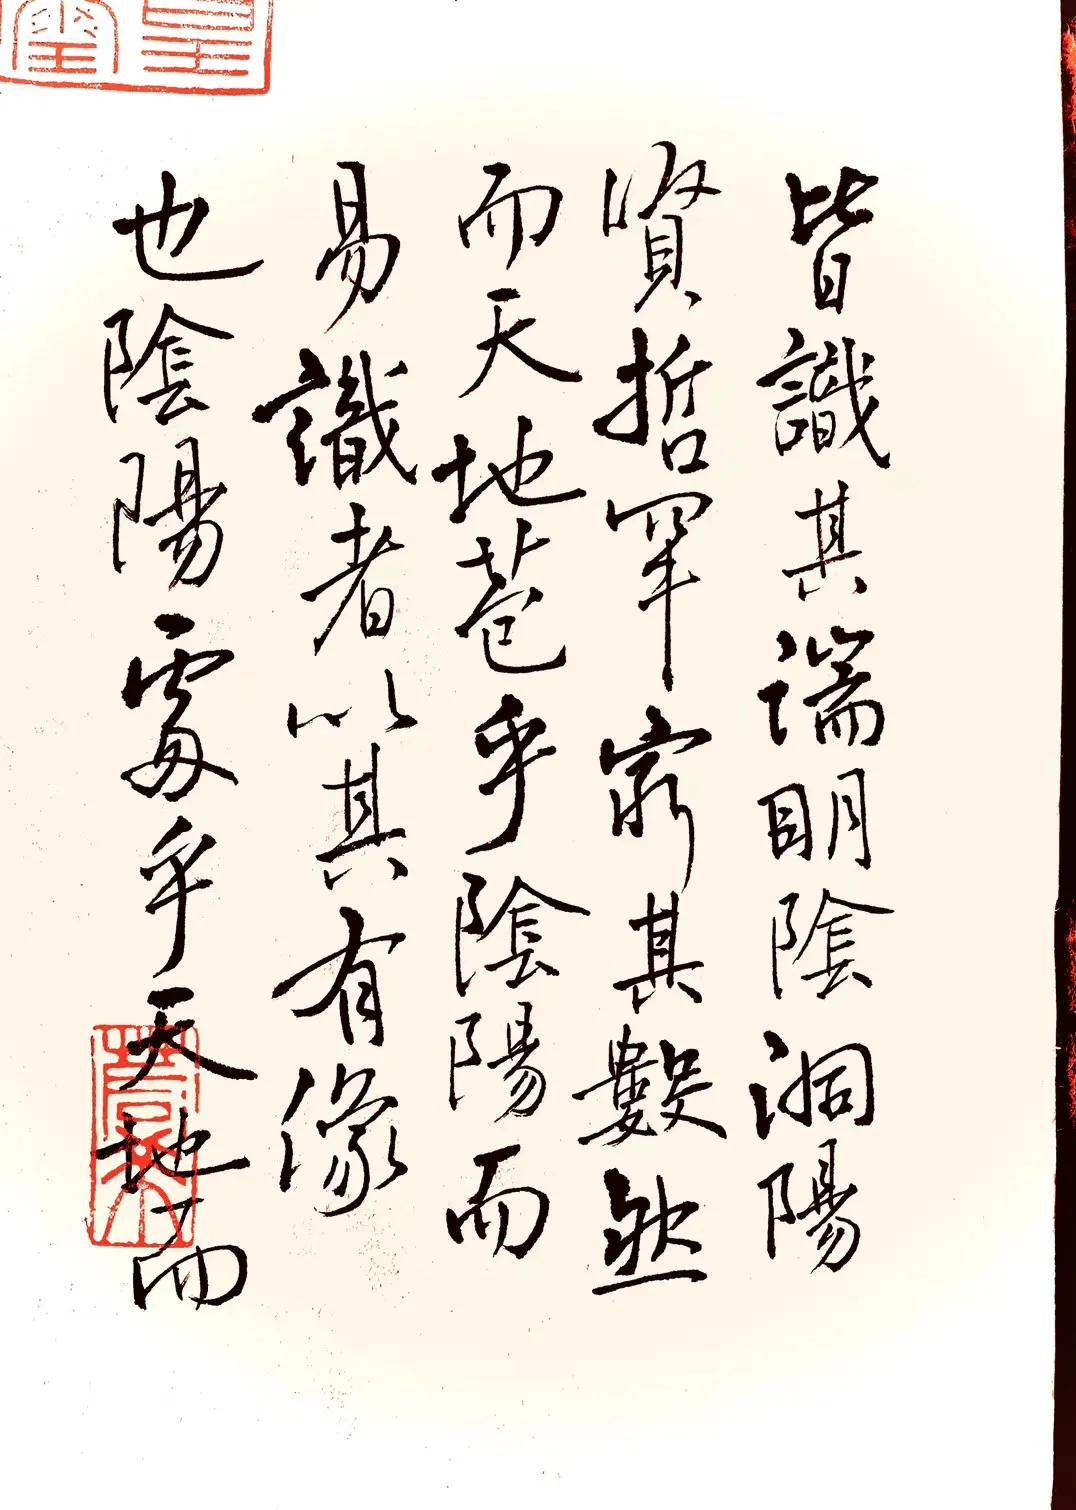 皆識其端明陰洞陽
賢哲罕窮其數然
而天地苞乎陰陽而
易識者以其有像
也陰陽處乎天地而